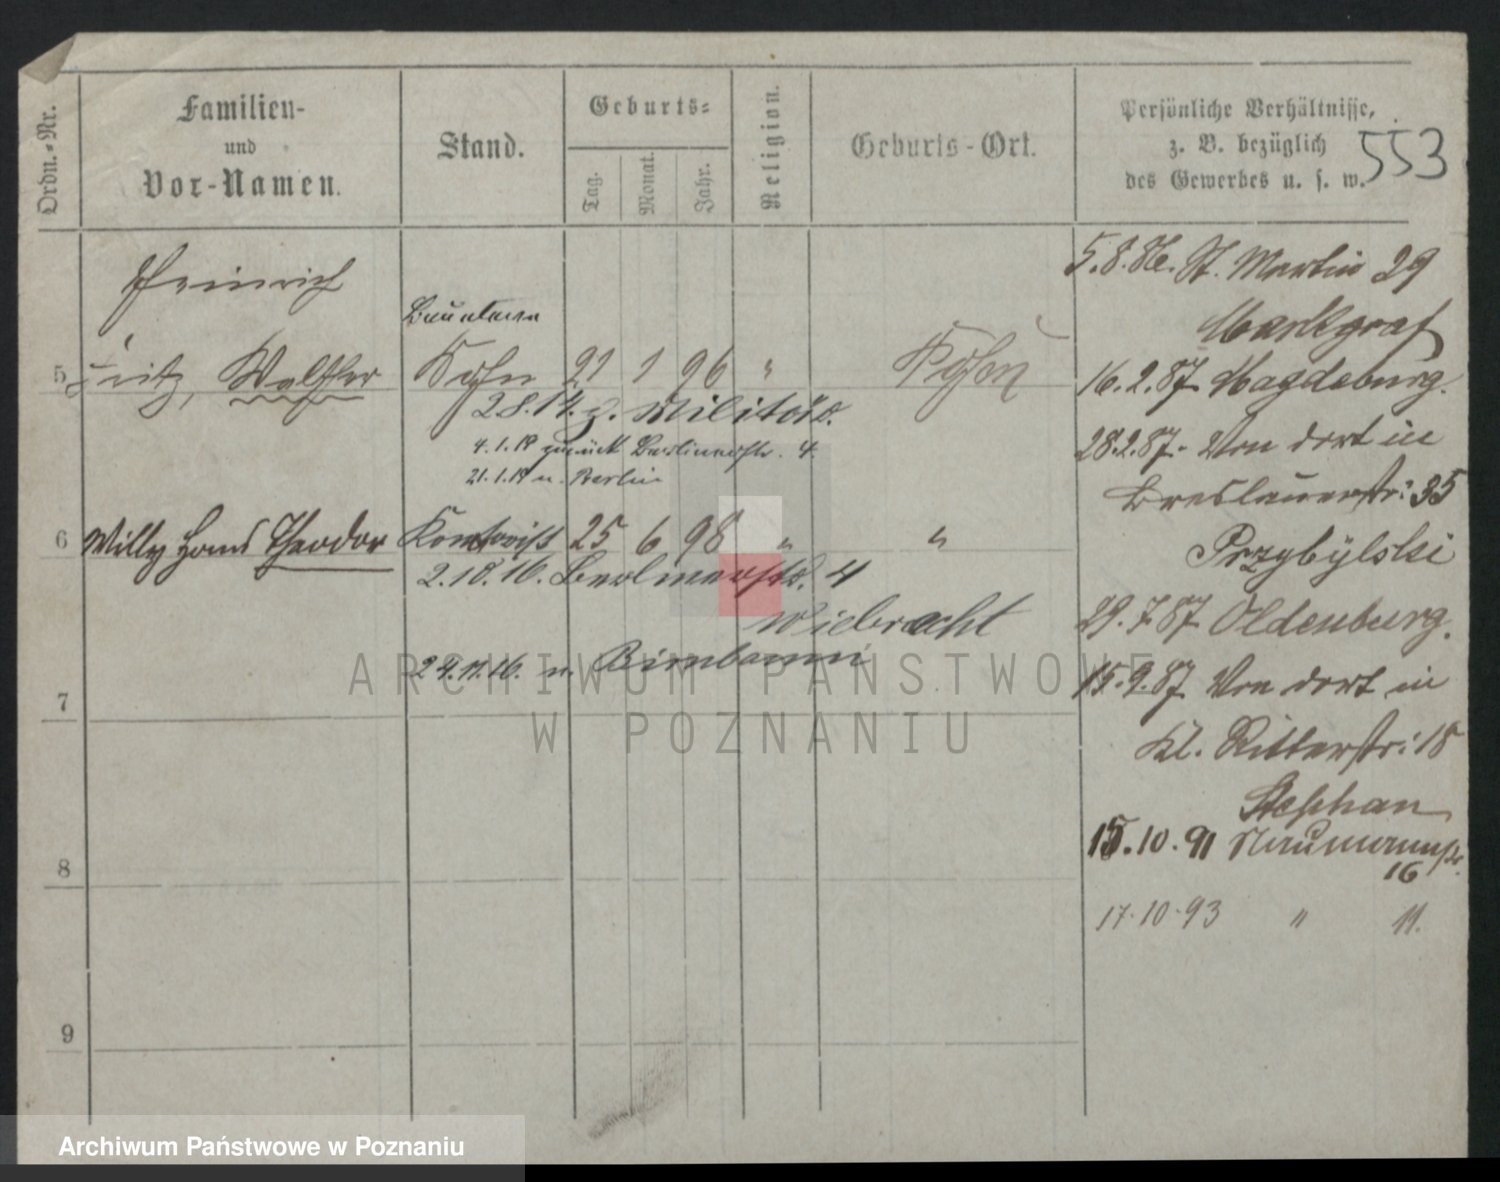 Ordn.-Nr.
Familien-
und
Vor-Namen.
Stand.
Geburts-
Tag.
Monat.
Jahr.
Religion.
Geburts-Ort.
Persönliche Verhältnisse,
z. B. bezüglich
des Gewerbes u. s. w.
553
Heinrich
5 Fritz, Walther
Sohn 21 1 96 " Posen
2.8.14. z. Militär.
4.1.19 zurück Berlinerstr. 4.
21.1.19 n. Berlin
6 Willy Hans Theodor
25 6 98 " "
2.10.16. Berlinerstr. 4
Wiebracht
24.11.16. n. Birnbaum
7
8
9
5.8.86. St. Martin 29
Markgraf
16.2.87 Magdeburg.
28.2.87. Von dort in
Breslauerstr: 35
Przybylski
29.7.87 Oldenburg.
15.9.87 Von dort in
Kl. Ritterstr: 18
Stephan
15.10.91 Naumannstr.
16
17.10.93 " 11.
ARCHIWUM PAŃSTWOWE
W POZNANIU
Archiwum Państwowe w Poznaniu